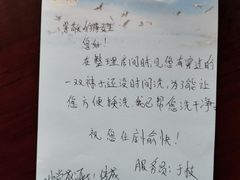 尊敬的住客先生
您好！
在整理房间时,见您有穿过的
一双袜子还没时间洗,为了能让
您方便换洗,我已帮您洗干净
祝,您住店愉快！
服务员：于枝